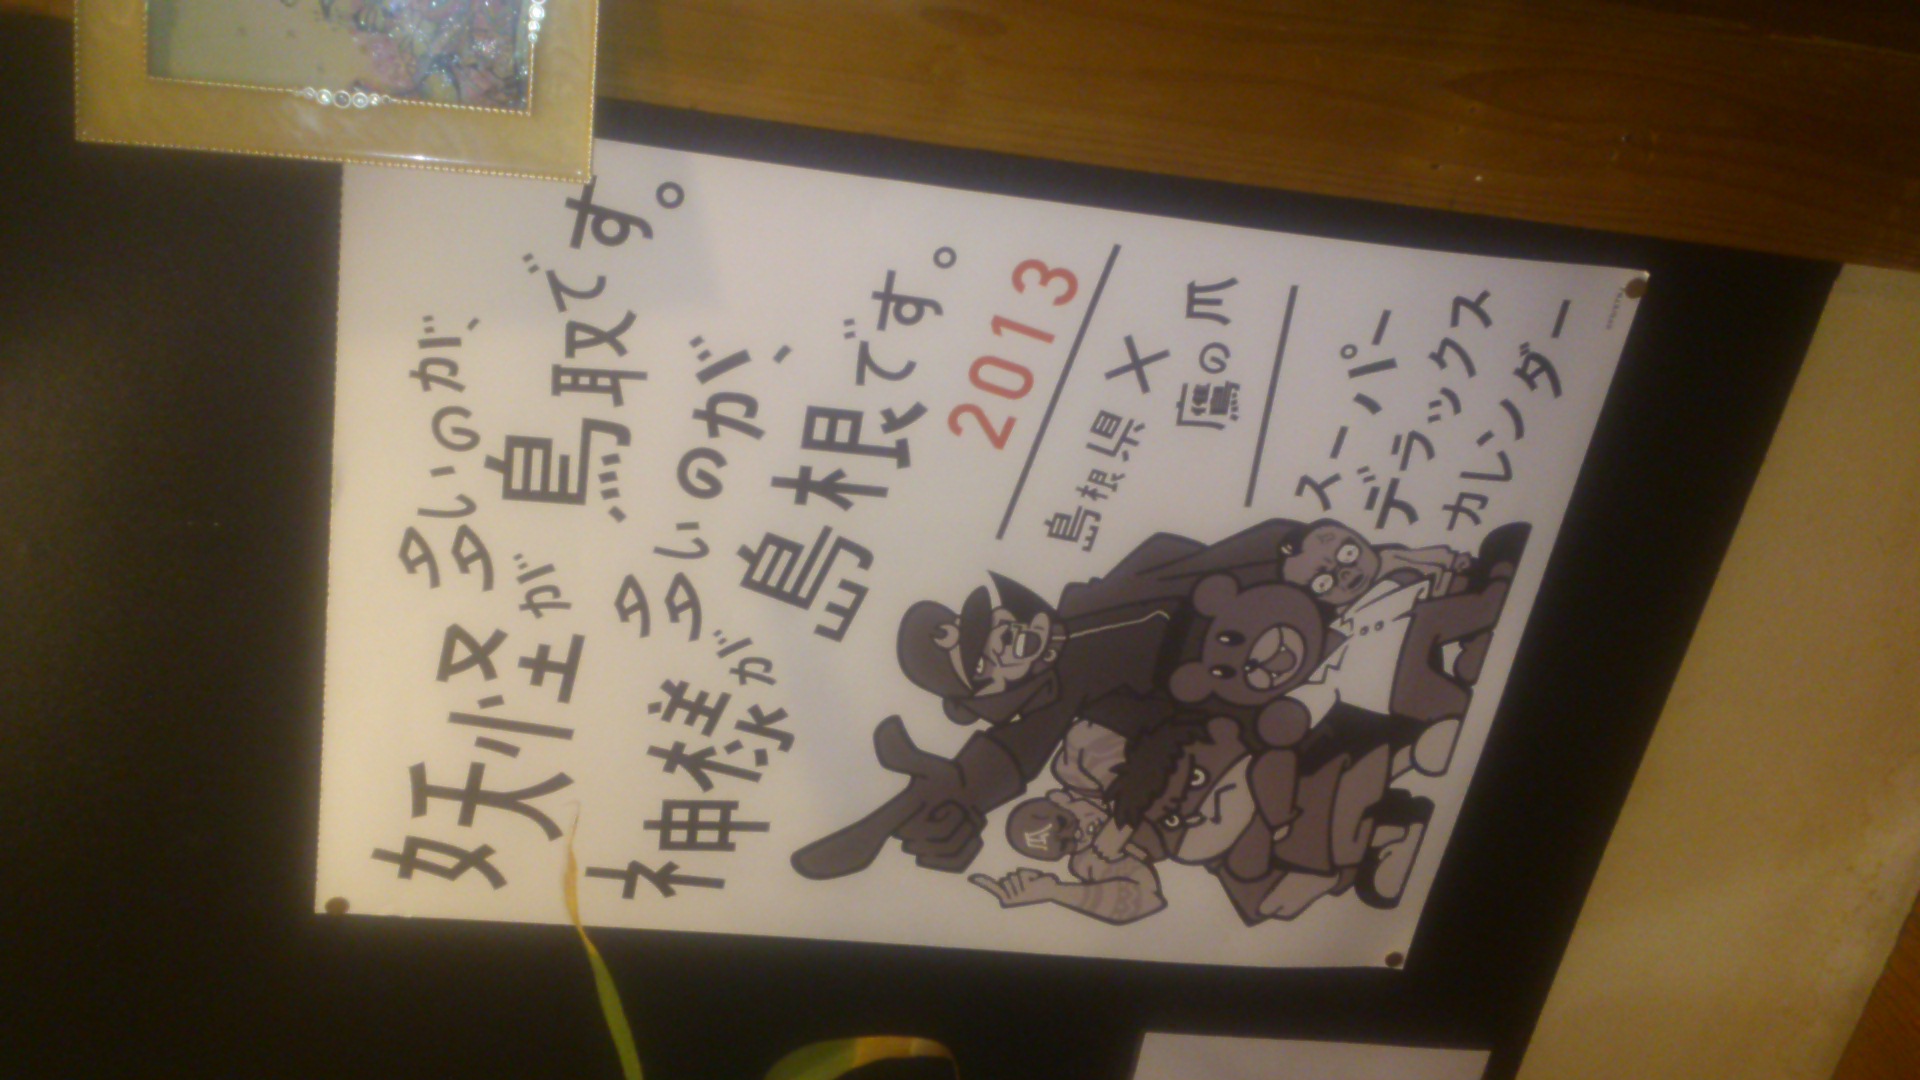 妖怪が多いのが、
鳥取です。
神様が多いのが、
島根です。
2013
島根県×
鷹の爪
スーパー
デラックス
カレンダー
爪